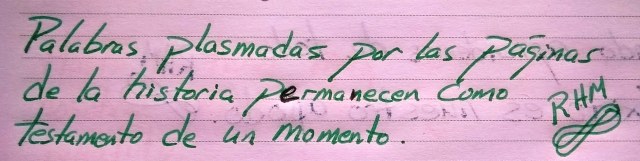 Palabras plasmadas por las páginas
de la historia permanecen como
testamento de un momento.
RHM